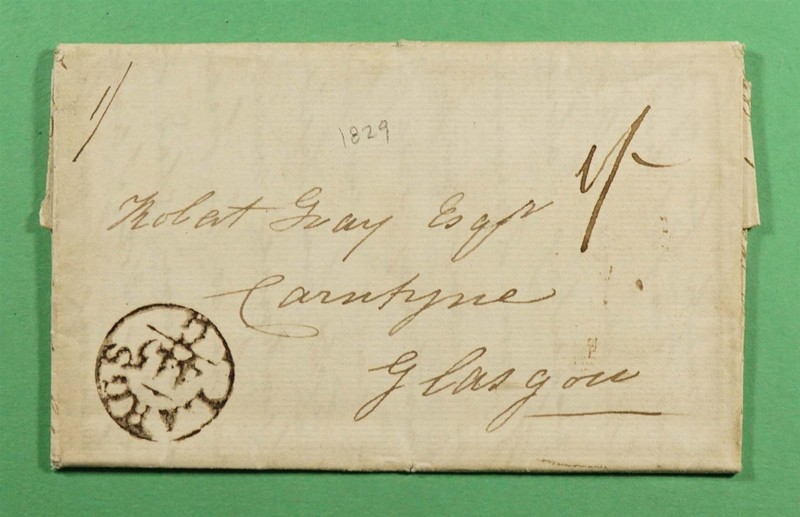 1/
1829
1/-
Robert Gray Esqr
Carntyne
Glasgow
LARGS